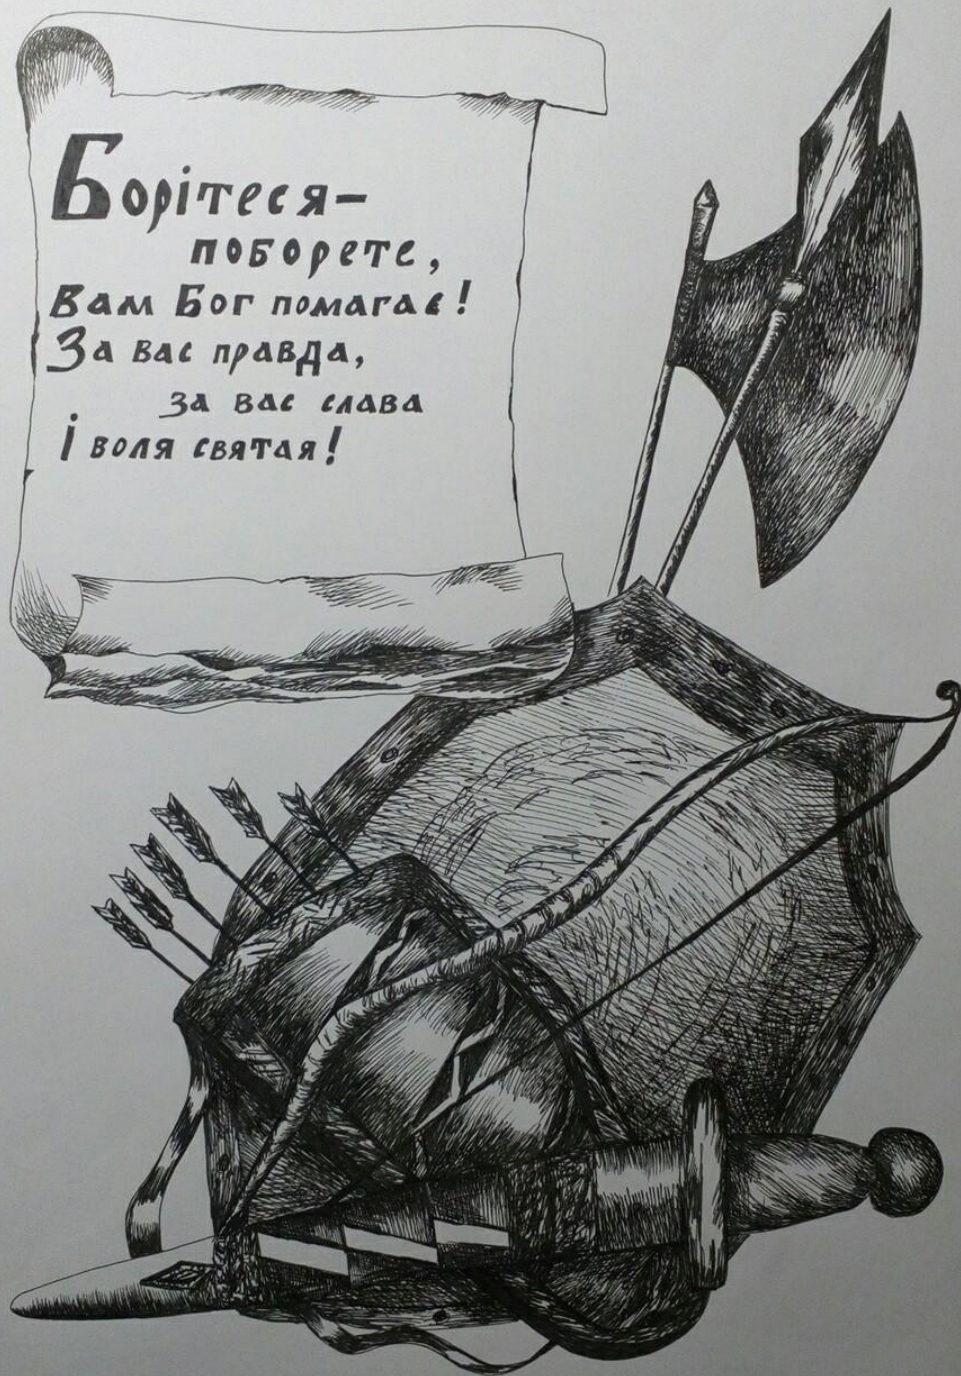 Борітеся–
поборете,
Вам Бог помагає!
За вас правда,
за вас слава
І воля святая!